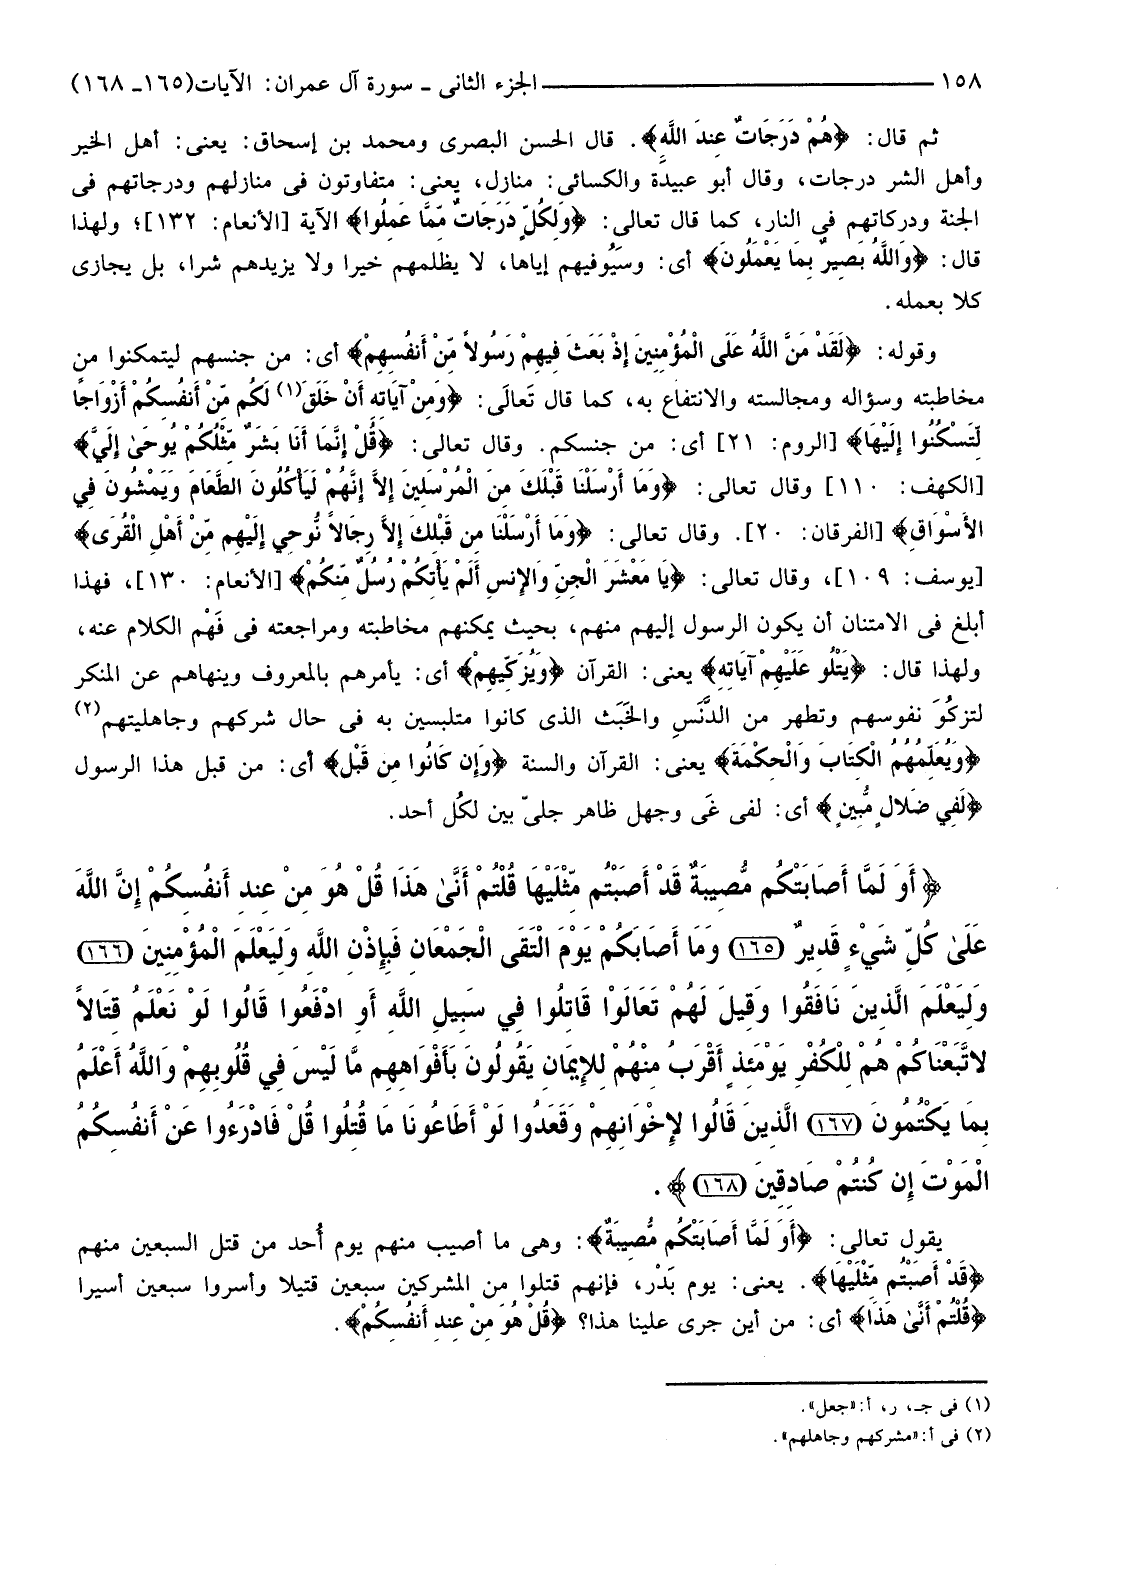 ١٥٨ ـــــــ الجزء الثانى ـ سورة آل عمران: الآيات(١٦٥ـ ١٦٨)
ثم قال: ﴿هُمْ دَرَجَاتٌ عِندَ اللَّهِ﴾. قال الحسن البصرى ومحمد بن إسحاق: يعنى: أهل الخير
وأهل الشر درجات، وقال أبو عبيدة والكسائى: منازل، يعنى: متفاوتون فى منازلهم ودرجاتهم فى
الجنة ودركاتهم فى النار، كما قال تعالى: ﴿وَلِكُلٍّ دَرَجَاتٌ مِّمَّا عَمِلُوا﴾ الآية [الأنعام: ١٣٢]؛ ولهذا
قال: ﴿وَاللَّهُ بَصِيرٌ بِمَا يَعْمَلُونَ﴾ أى: وسيُوفيهم إياها، لا يظلمهم خيرا ولا يزيدهم شرا، بل يجازى
كلا بعمله.
وقوله: ﴿لَقَدْ مَنَّ اللَّهُ عَلَى الْمُؤْمِنِينَ إِذْ بَعَثَ فِيهِمْ رَسُولاً مِّنْ أَنفُسِهِمْ﴾ أى: من جنسهم ليتمكنوا من
مخاطبته وسؤاله ومجالسته والانتفاع به، كما قال تَعالَى: ﴿وَمِنْ آيَاتِهِ أَنْ خَلَقَ(١) لَكُم مِّنْ أَنفُسِكُمْ أَزْوَاجًا
لِّتَسْكُنُوا إِلَيْهَا﴾ [الروم: ٢١] أى: من جنسكم. وقال تعالى: ﴿قُلْ إِنَّمَا أَنَا بَشَرٌ مِّثْلُكُمْ يُوحَى إِلَيَّ﴾
[الكهف: ١١٠] وقال تعالى: ﴿وَمَا أَرْسَلْنَا قَبْلَكَ مِنَ الْمُرْسَلِينَ إِلاَّ إِنَّهُمْ لَيَأْكُلُونَ الطَّعَامَ وَيَمْشُونَ فِي
الأَسْوَاقِ﴾ [الفرقان: ٢٠]. وقال تعالى: ﴿وَمَا أَرْسَلْنَا مِن قَبْلِكَ إِلاَّ رِجَالاً نُّوحِي إِلَيْهِم مِّنْ أَهْلِ الْقُرَى﴾
[يوسف: ١٠٩]، وقال تعالى: ﴿يَا مَعْشَرَ الْجِنِّ وَالإِنسِ أَلَمْ يَأْتِكُمْ رُسُلٌ مِّنكُمْ﴾ [الأنعام: ١٣٠]، فهذا
أبلغ فى الامتنان أن يكون الرسول إليهم منهم، بحيث يمكنهم مخاطبته ومراجعته فى فَهْم الكلام عنه،
ولهذا قال: ﴿يَتْلُو عَلَيْهِمْ آيَاتِهِ﴾ يعنى: القرآن ﴿وَيُزَكِّيهِمْ﴾ أى: يأمرهم بالمعروف وينهاهم عن المنكر
لتزكُوَ نفوسهم وتطهر من الدَّنَسِ والخَبَث الذى كانوا متلبسين به فى حال شركهم وجاهليتهم(٢)
﴿وَيُعَلِّمُهُمُ الْكِتَابَ وَالْحِكْمَةَ﴾ يعنى: القرآن والسنة ﴿وَإِن كَانُوا مِن قَبْل﴾ أى: من قبل هذا الرسول
﴿لَفِي ضَلالٍ مُّبِينٍ﴾ أى: لفى غَى وجهل ظاهر جلىّ بين لكُل أحد.
﴿أَوَ لَمَّا أَصَابَتْكُم مُّصِيبَةٌ قَدْ أَصَبْتُم مِّثْلَيْهَا قُلْتُمْ أَنَّىٰ هَذَا قُلْ هُوَ مِنْ عِندِ أَنفُسِكُمْ إِنَّ اللَّهَ
عَلَىٰ كُلِّ شَيْءٍ قَدِيرٌ (١٦٥) وَمَا أَصَابَكُمْ يَوْمَ الْتَقَى الْجَمْعَانِ فَبِإِذْنِ اللَّهِ وَلِيَعْلَمَ الْمُؤْمِنِينَ (١٦٦)
وَلِيَعْلَمَ الَّذِينَ نَافَقُوا وَقِيلَ لَهُمْ تَعَالَوْا قَاتِلُوا فِي سَبِيلِ اللَّهِ أَوِ ادْفَعُوا قَالُوا لَوْ نَعْلَمُ قِتَالاً
لاتَّبَعْنَاكُمْ هُمْ لِلْكُفْرِ يَوْمَئِذٍ أَقْرَبُ مِنْهُمْ لِلإِيمَانِ يَقُولُونَ بِأَفْوَاهِهِم مَّا لَيْسَ فِي قُلُوبِهِمْ وَاللَّهُ أَعْلَمُ
بِمَا يَكْتُمُونَ (١٦٧) الَّذِينَ قَالُوا لإِخْوَانِهِمْ وَقَعَدُوا لَوْ أَطَاعُونَا مَا قُتِلُوا قُلْ فَادْرَءُوا عَنْ أَنفُسِكُمُ
الْمَوْتَ إِن كُنتُمْ صَادِقِينَ (١٦٨)﴾.
يقول تعالى: ﴿أَوَ لَمَّا أَصَابَتْكُم مُّصِيبَةٌ﴾: وهى ما أصيب منهم يوم أُحد من قتل السبعين منهم
﴿قَدْ أَصَبْتُم مِّثْلَيْهَا﴾. يعنى: يوم بَدْر، فإنهم قتلوا من المشركين سبعين قتيلا وأسروا سبعين أسيرا
﴿قُلْتُمْ أَنَّىٰ هَذَا﴾ أى: من أين جرى علينا هذا؟ ﴿قُلْ هُوَ مِنْ عِندِ أَنفُسِكُمْ﴾.
(١) فى جـ، ر، أ: «جعل».
(٢) فى أ: «مشركهم وجاهلهم».